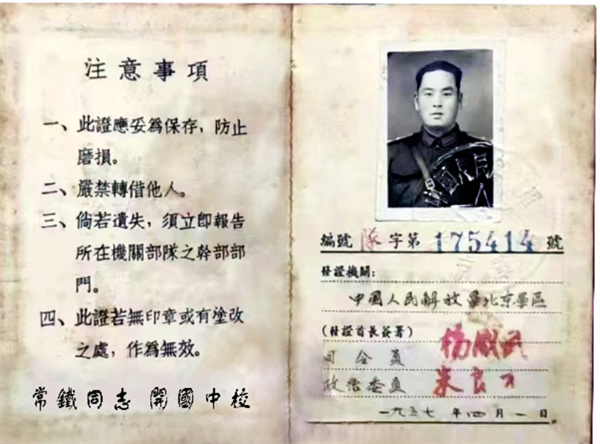 注意事項
一、此證應妥為保存，防止
磨損。
二、嚴禁轉借他人。
三、倘若遺失，須立即報告
所在機關部隊之幹部部
門。
四、此證若無印章或有塗改
之處，作為無效。
常鐵同志 開國中校
編號 隊 字第 175414 號
發證機關：
中國人民解放軍北京軍區
（發證首長簽署）
司令員 楊成武
政治委員 朱良才
一九五七年四月一日